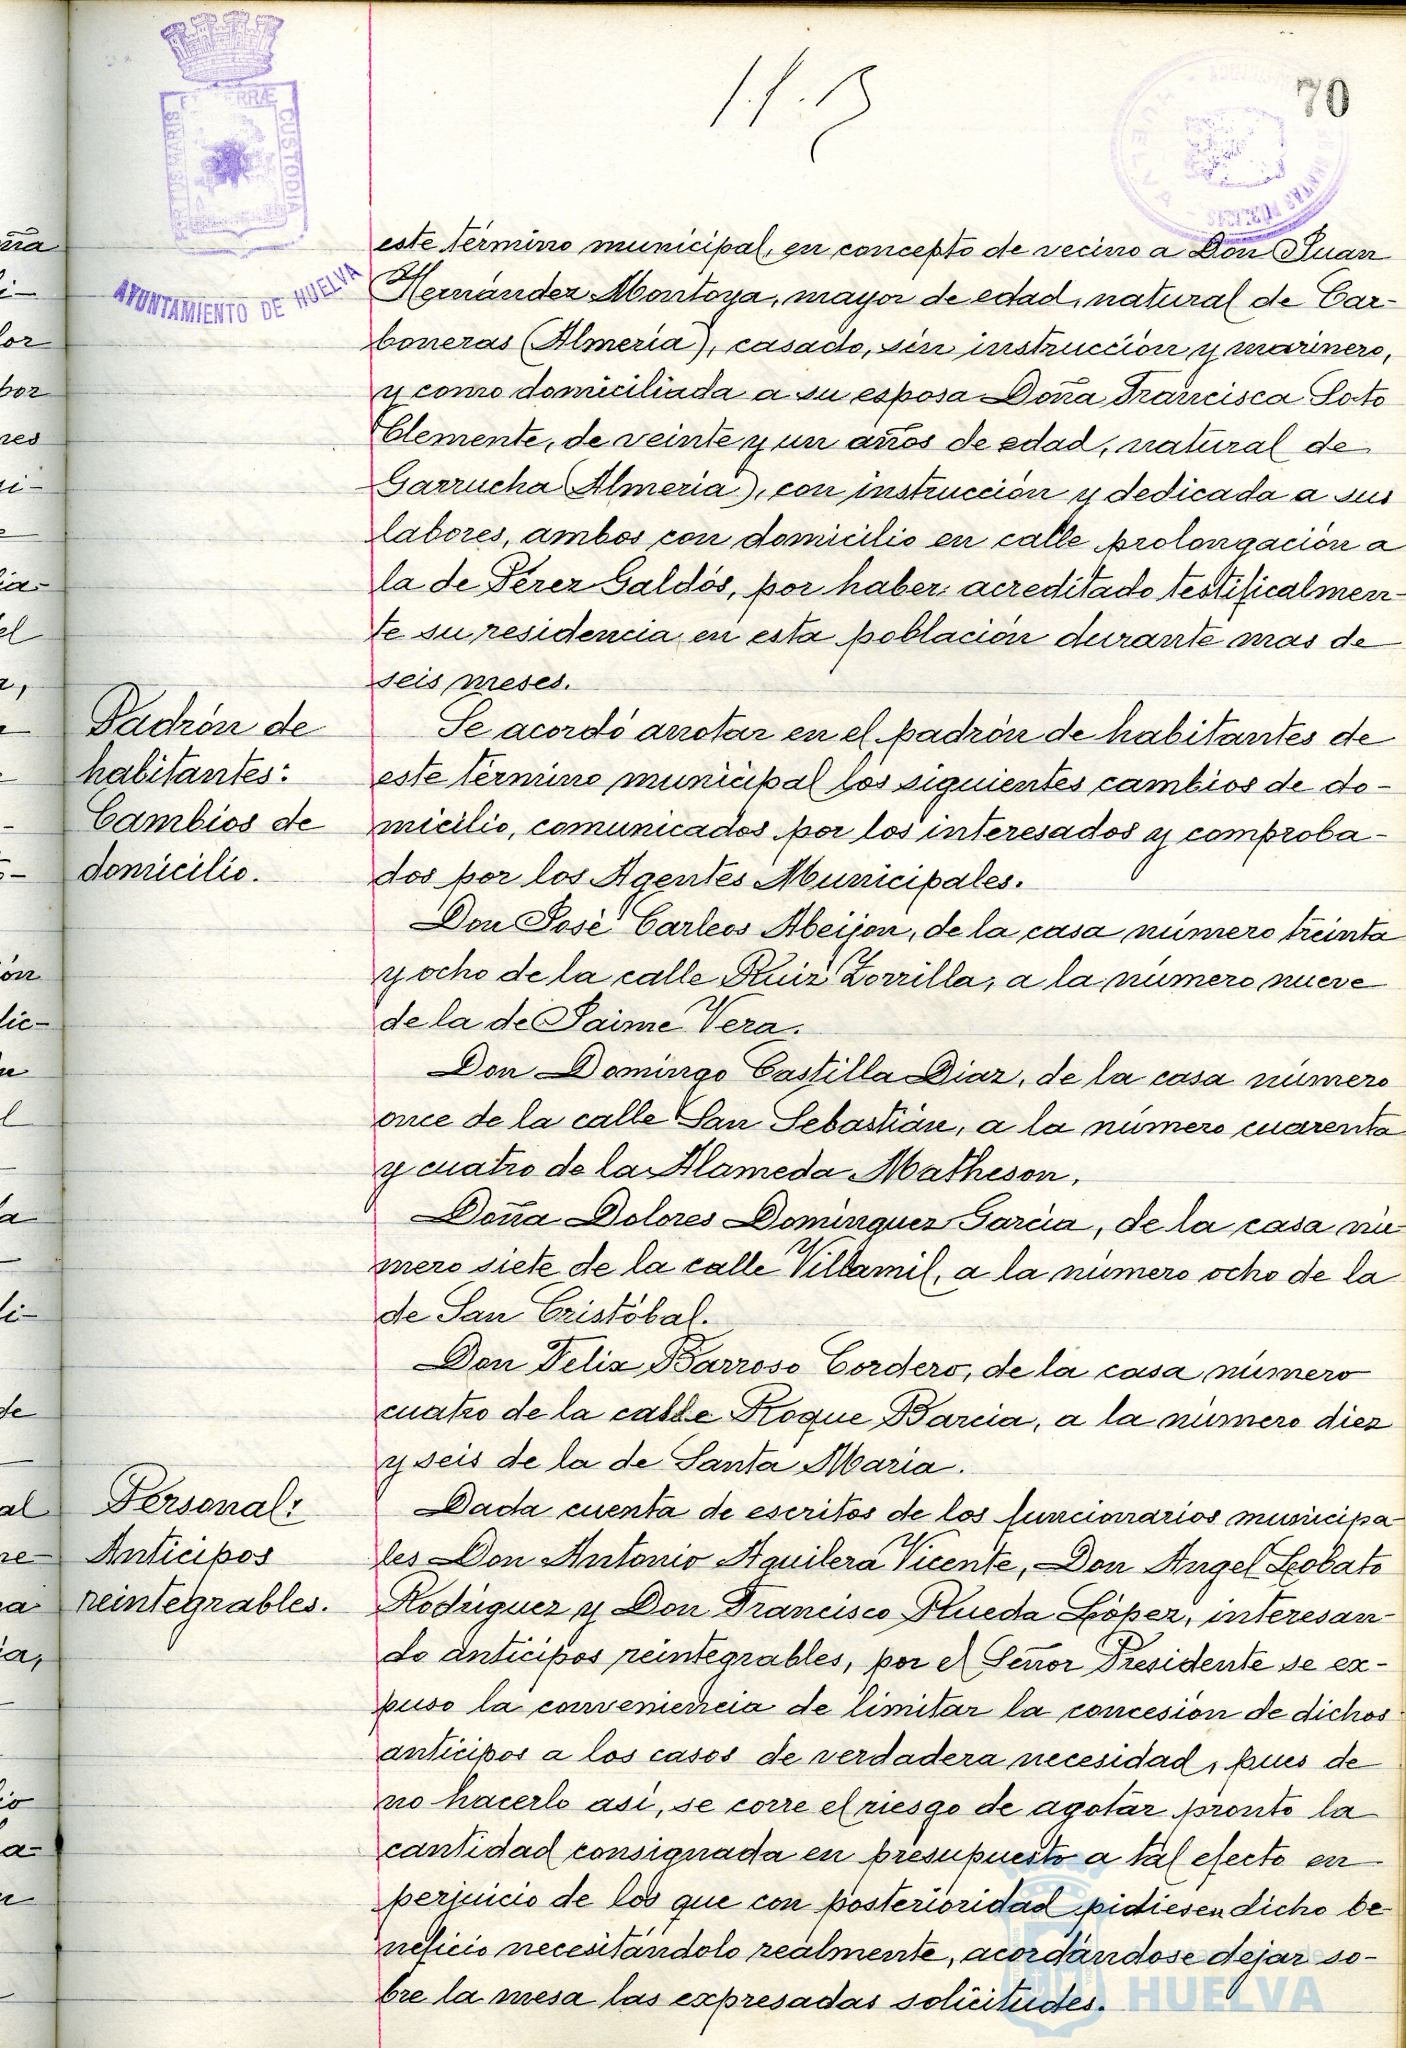 70
PORTUS MARIS ET TERRÆ CUSTODIA
AYUNTAMIENTO DE HUELVA
este término municipal, en concepto de vecino a Don Juan
Hernández Montoya, mayor de edad, natural de Car-
boneras (Almería), casado, sin instrucción y marinero,
y como domiciliada a su esposa Doña Francisca Soto
Clemente, de veinte y un años de edad, natural de
Garrucha (Almería), con instrucción y dedicada a sus
labores, ambos con domicilio en calle prolongación a
la de Pérez Galdós, por haber acreditado testificalmen-
te su residencia en esta población durante mas de
seis meses.
Padrón de
habitantes:
Cambios de
domicilio.
Se acordó anotar en el padrón de habitantes de
este término municipal los siguientes cambios de do-
micilio, comunicados por los interesados y comproba-
dos por los Agentes Municipales.
Don José Carleos Abeijon, de la casa número treinta
y ocho de la calle Ruiz Zorrilla, a la número nueve
de la de Jaime Vera.
Don Domingo Castilla Diaz, de la casa número
once de la calle San Sebastián, a la número cuarenta
y cuatro de la Alameda Matheson.
Doña Dolores Dominguez García, de la casa nú
mero siete de la calle Villamil, a la número ocho de la
de San Cristóbal.
Don Felix Barroso Cordero, de la casa número
cuatro de la calle Roque Barcia, a la número diez
y seis de la de Santa María.
Personal:
Anticipos
reintegrables.
Dada cuenta de escritos de los funcionarios municipa
les Don Antonio Aguilera Vicente, Don Angel Lobato
Rodríguez y Don Francisco Rueda López, interesan-
do anticipos reintegrables, por el Señor Presidente se ex-
puso la conveniencia de limitar la concesión de dichos
anticipos a los casos de verdadera necesidad, pues de
no hacerlo así, se corre el riesgo de agotar pronto la
cantidad consignada en presupuesto a tal efecto en
perjuicio de los que con posterioridad pidiesen dicho be-
neficio necesitándolo realmente, acordándose dejar so-
bre la mesa las expresadas solicitudes.
HUELVA